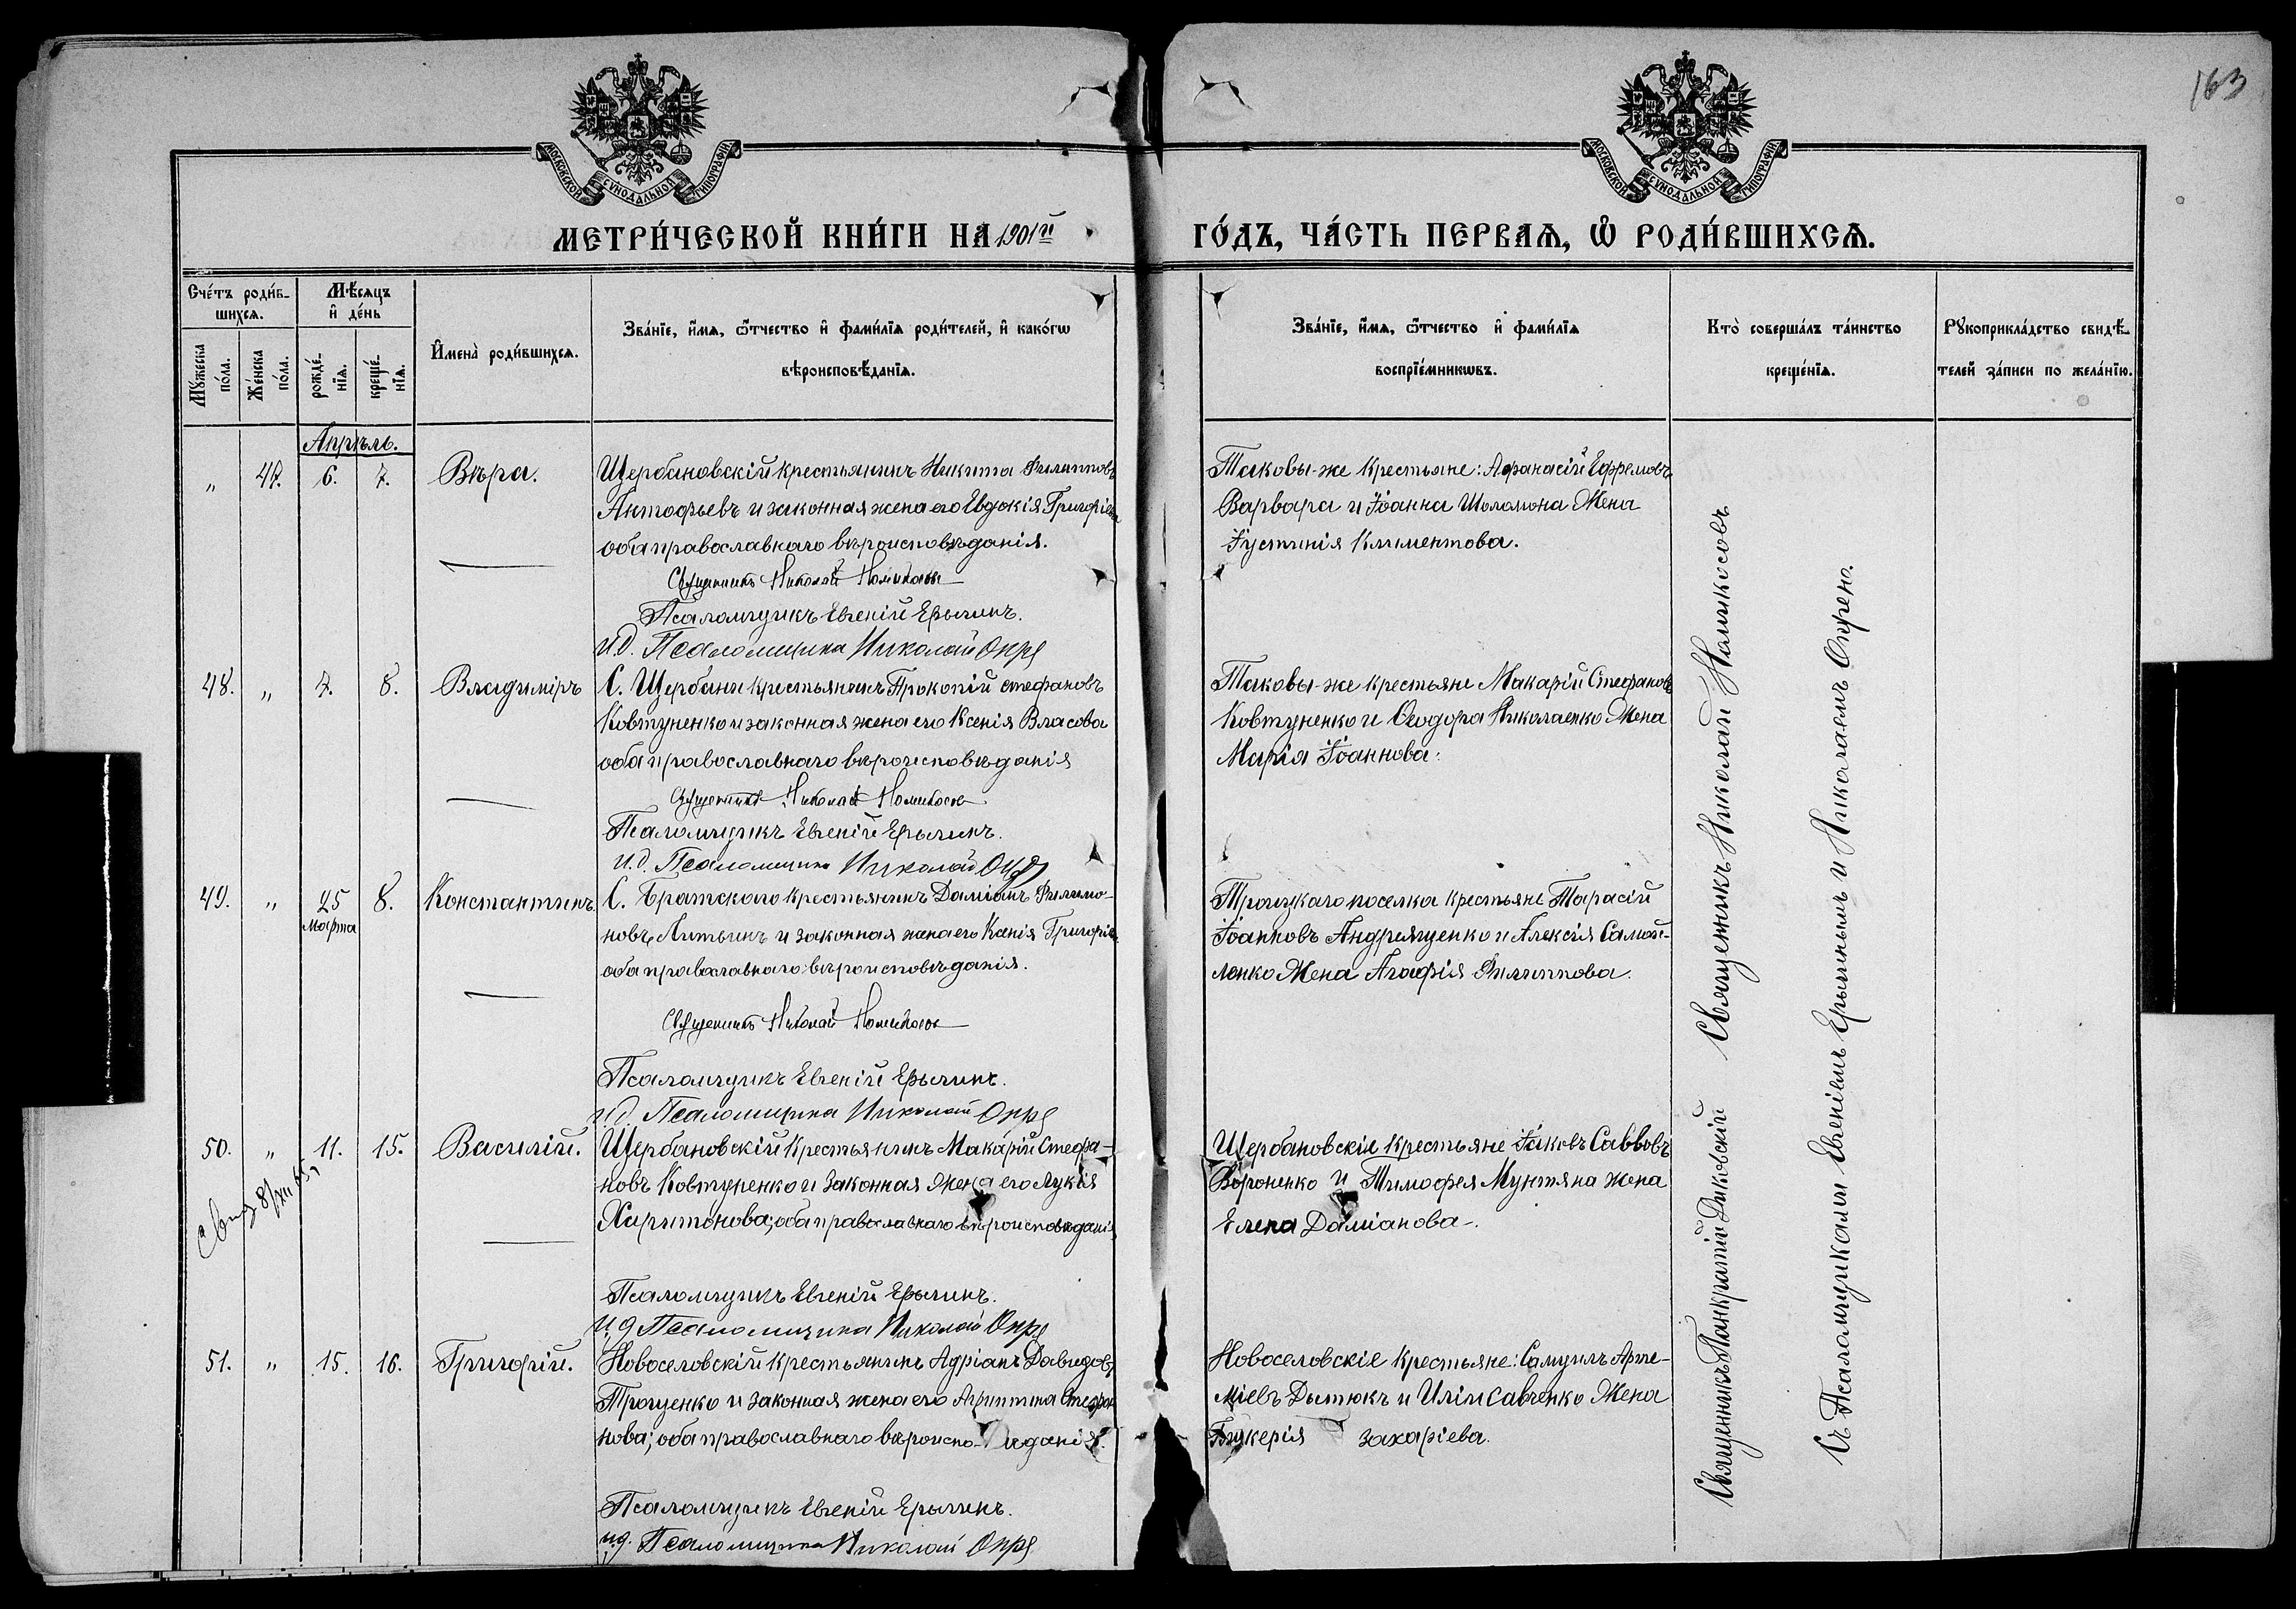 163
МОСКОВСКОЙ СѴНОДАЛЬНОЙ ТИПОГРАФІИ
МОСКОВСКОЙ СѴНОДАЛЬНОЙ ТИПОГРАФІИ
МЕТРИ́ЧЕСКОЙ КНИ́ГИ НА 1901й ГО́ДЪ, ЧА́СТЬ ПЕ́РВАЯ, Ѽ РОДИ́ВШИХСЯ.
Сче́тъ роди́в-
шихся.
Мꙋ́жеска по́ла.
Же́нска по́ла.
Мѣ́сяцъ
и҆ де́нь
рожде́-
нїя.
креще́-
нїя.
И҆мена̀ роди́вшихся.
Зва́нїе, и҆́мя, ѻ҆́тчество и҆ фами́лїя роди́телей, и҆ како́гѡ
вѣроисповѣ́данїя.
Зва́нїе, и҆́мя, ѻ҆́тчество и҆ фами́лїя
воспрїе́мникѡвъ.
Кто̀ соверша́лъ та́инство
креще́нїя.
Рꙋкоприкла́дство свидѣ́-
телей за́писи по жела́нїю.
Апрѣль.
„ 47. 6. 7. Вѣра.
Щербановскій крестьянинъ Никита Филипповъ
Антофьевъ и законная жена его Евдокія Григоріева
оба православнаго вѣроисповѣданія.
Священникъ Николай Номикосов
Псаломщикъ Евгеній Ерыгинъ.
И.д. Псаломщика Николай Опря
Таковы-же крестьяне: Афанасій Ефремовъ
Варвара и Іоанна Шоломона жена
Іустинія Климентова.
48. „ 7. 8. Владиміръ
С. Щербани крестьянинъ Прокопій Стефановъ
Ковтуненко и законная жена его Ксенія Власова
оба православнаго вѣроисповѣданія
Священникъ Николай Номикосов
Псаломщикъ Евгеній Ерыгинъ.
И.д. Псаломщика Николай Опря
Таковы-же крестьяне Макарій Стефановъ
Ковтуненко и Ѳеодора Николаенко жена
Марія Іоаннова.
49. „ 25 марта 8. Константинъ
С. Братскаго крестьянинъ Даміанъ Филимо-
новъ Литвинъ и законная жена его Ксенія Григоріева
оба православнаго вѣроисповѣданія.
Священникъ Николай Номикосов
Псаломщикъ Евгеній Ерыгинъ.
И.д. Псаломщика Николай Опря
Троицкаго поселка крестьяне Тарасій
Іоанновъ Андрющенко и Алексія Самой-
ленко жена Агафія Филиппова.
50. „ 11. 15. Василій.
Щербановскій крестьянинъ Макарій Стефа-
новъ Ковтуненко и законная жена его Лукія
Харитонова; оба православнаго вѣроисповѣданія
Псаломщикъ Евгеній Ерыгинъ.
И.д. Псаломщика Николай Опря
Щербановскіе крестьяне Іаковъ Саввовъ
Вороненко и Тимофея Мунтяна жена
Елена Даміанова.
51. „ 15. 16. Григорій.
Новоселовскій крестьянинъ Адріанъ Давидовъ
Троценко и законная жена его Агриппина Стефа
нова; оба православнаго вѣроиспо- вѣданія.
Псаломщикъ Евгеній Ерыгинъ.
И.д. Псаломщика Николай Опря
Новоселовскіе крестьяне: Самуилъ Арте-
міевъ Дытюкъ и Иліи Савченко жена
Гликерія Захаріева.
Священникъ Николай Номикосовъ
Священникъ Панкратій Диковскій
Съ Псаломщиками Евгеніемъ Ерыгинымъ и Николаемъ Опрею.